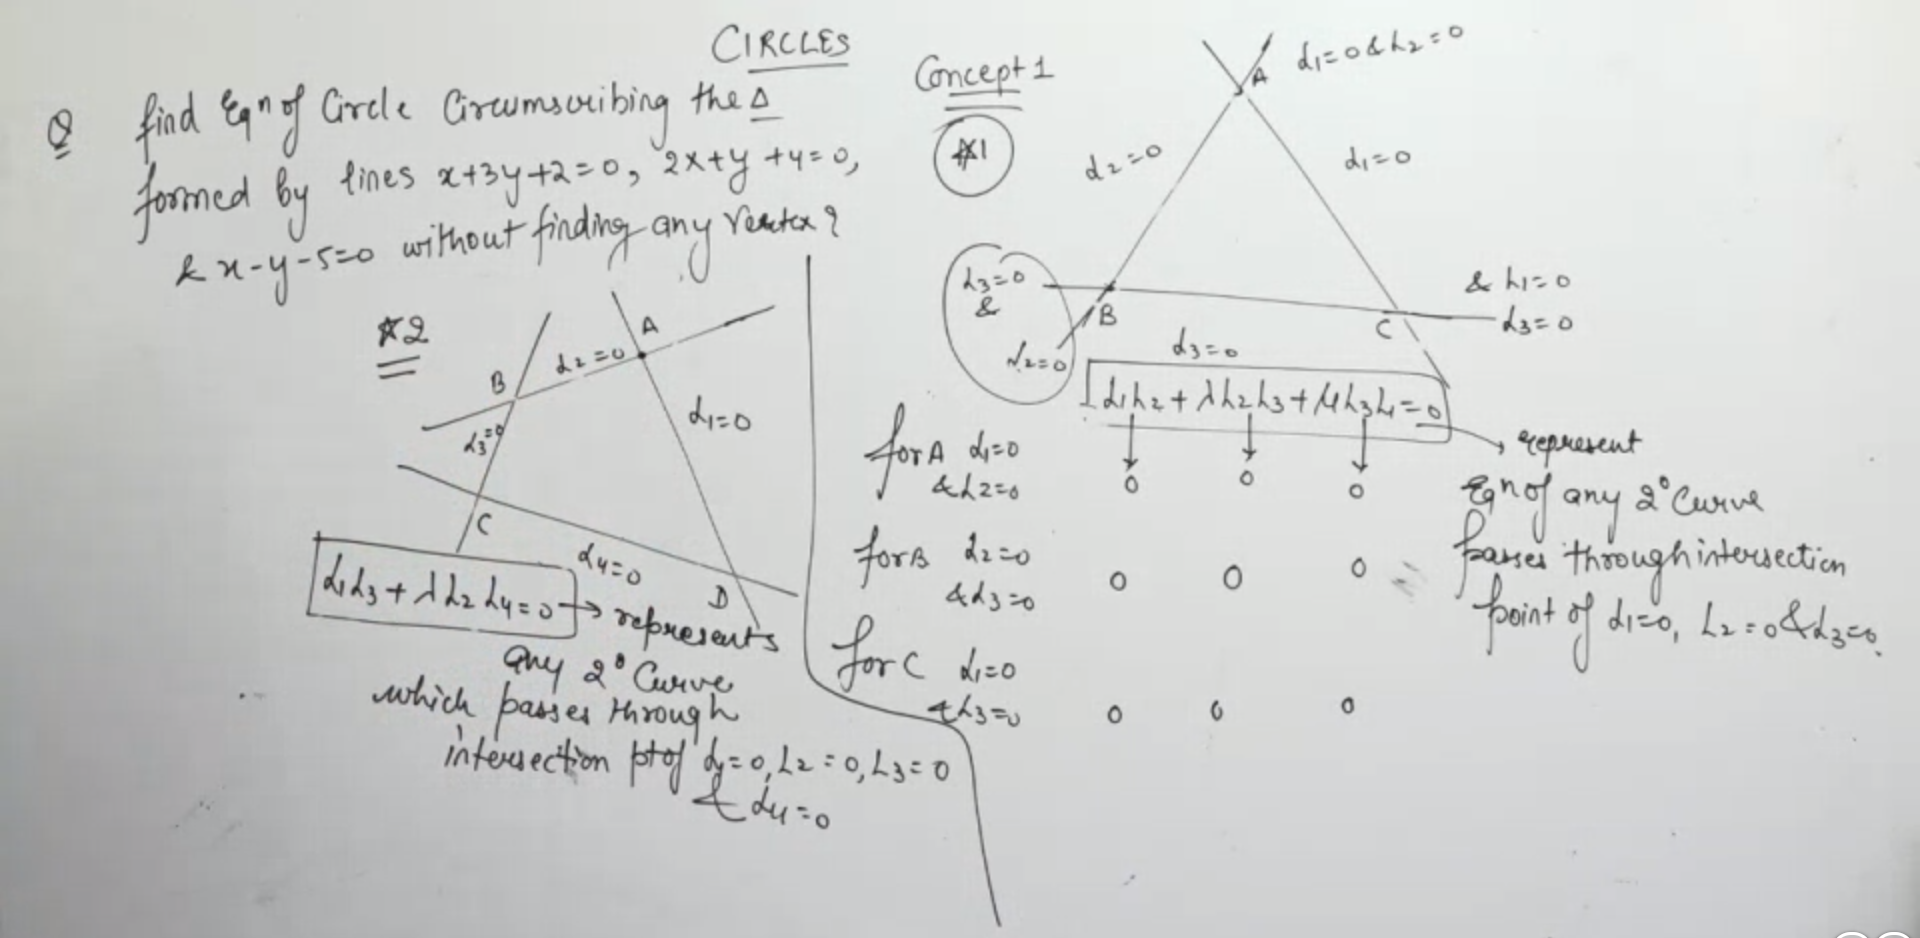 CIRCLES
Q find Eqn of Circle Circumscribing the Δ
formed by lines x+3y+2=0, 2x+y+4=0,
& x-y-5=0 without finding any Vertex?
Concept 1
*1
A L1=0 & L2=0
L2=0
L1=0
L3=0
&
L2=0
B
C
& L1=0
L3=0
L3=0
L1L2+λL2L3+μL3L1=0
represent
Eqn of any 2° Curve
passes through intersection
point of L1=0, L2=0 & L3=0.
for A L1=0
& L2=0
0 0 0
for B L2=0
& L3=0
0 0 0
for C L1=0
& L3=0
0 0 0
*2
A
B
L2=0
L1=0
L3=0
C
L4=0
D
L1L3+λL2L4=0 → represents
any 2° Curve
which passes through
intersection pt of L1=0, L2=0, L3=0
& L4=0